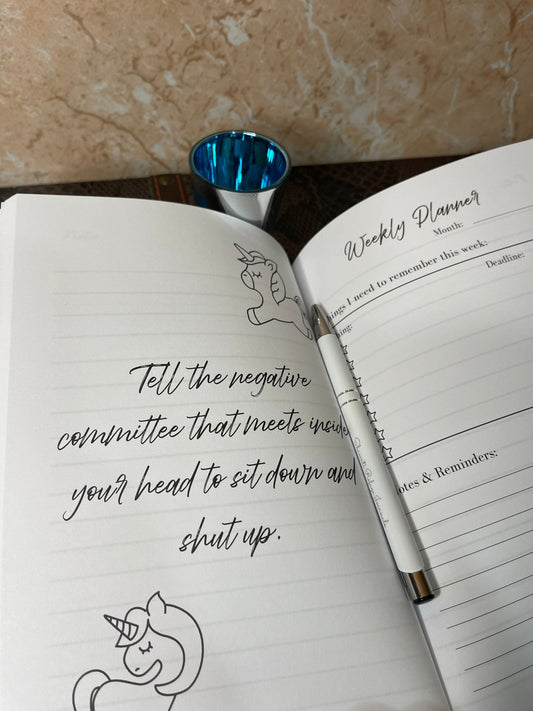 Tell the negative
committee that meets inside
your head to sit down and
shut up.
Weekly Planner
Month:
I need to remember this week:
Deadline:
& Reminders: